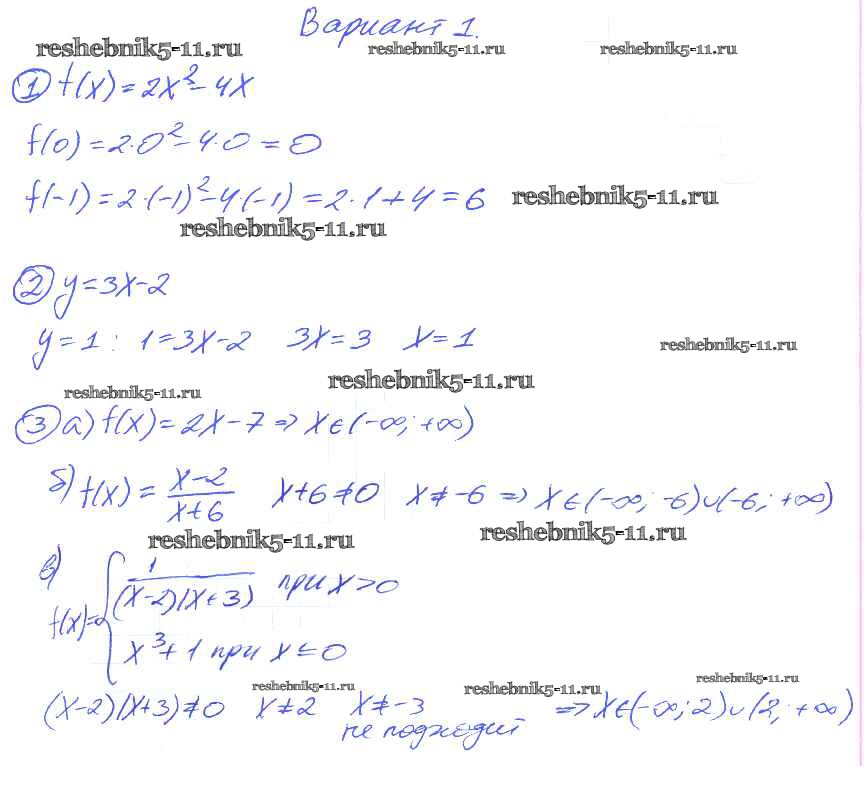 Вариант 1.
reshebnik5-11.ru reshebnik5-11.ru reshebnik5-11.ru
① f(x)=2x²-4x
f(0)=2·0²-4·0=0
f(-1)=2·(-1)²-4(-1)=2·1+4=6 reshebnik5-11.ru
reshebnik5-11.ru
② y=3x-2
y=1: 1=3x-2 3x=3 x=1 reshebnik5-11.ru
reshebnik5-11.ru reshebnik5-11.ru
③ а) f(x)=2x-7 => x∈(-∞; +∞)
б) f(x)=(x-2)/(x+6) x+6≠0 x≠-6 => x∈(-∞; -6)∪(-6; +∞)
reshebnik5-11.ru reshebnik5-11.ru
в) f(x)={ 1/((x-2)(x+3)) при x>0
x³+1 при x≤0
reshebnik5-11.ru reshebnik5-11.ru reshebnik5-11.ru
(x-2)(x+3)≠0 x≠2 x≠-3 => x∈(-∞; 2)∪(2; +∞)
не подходит